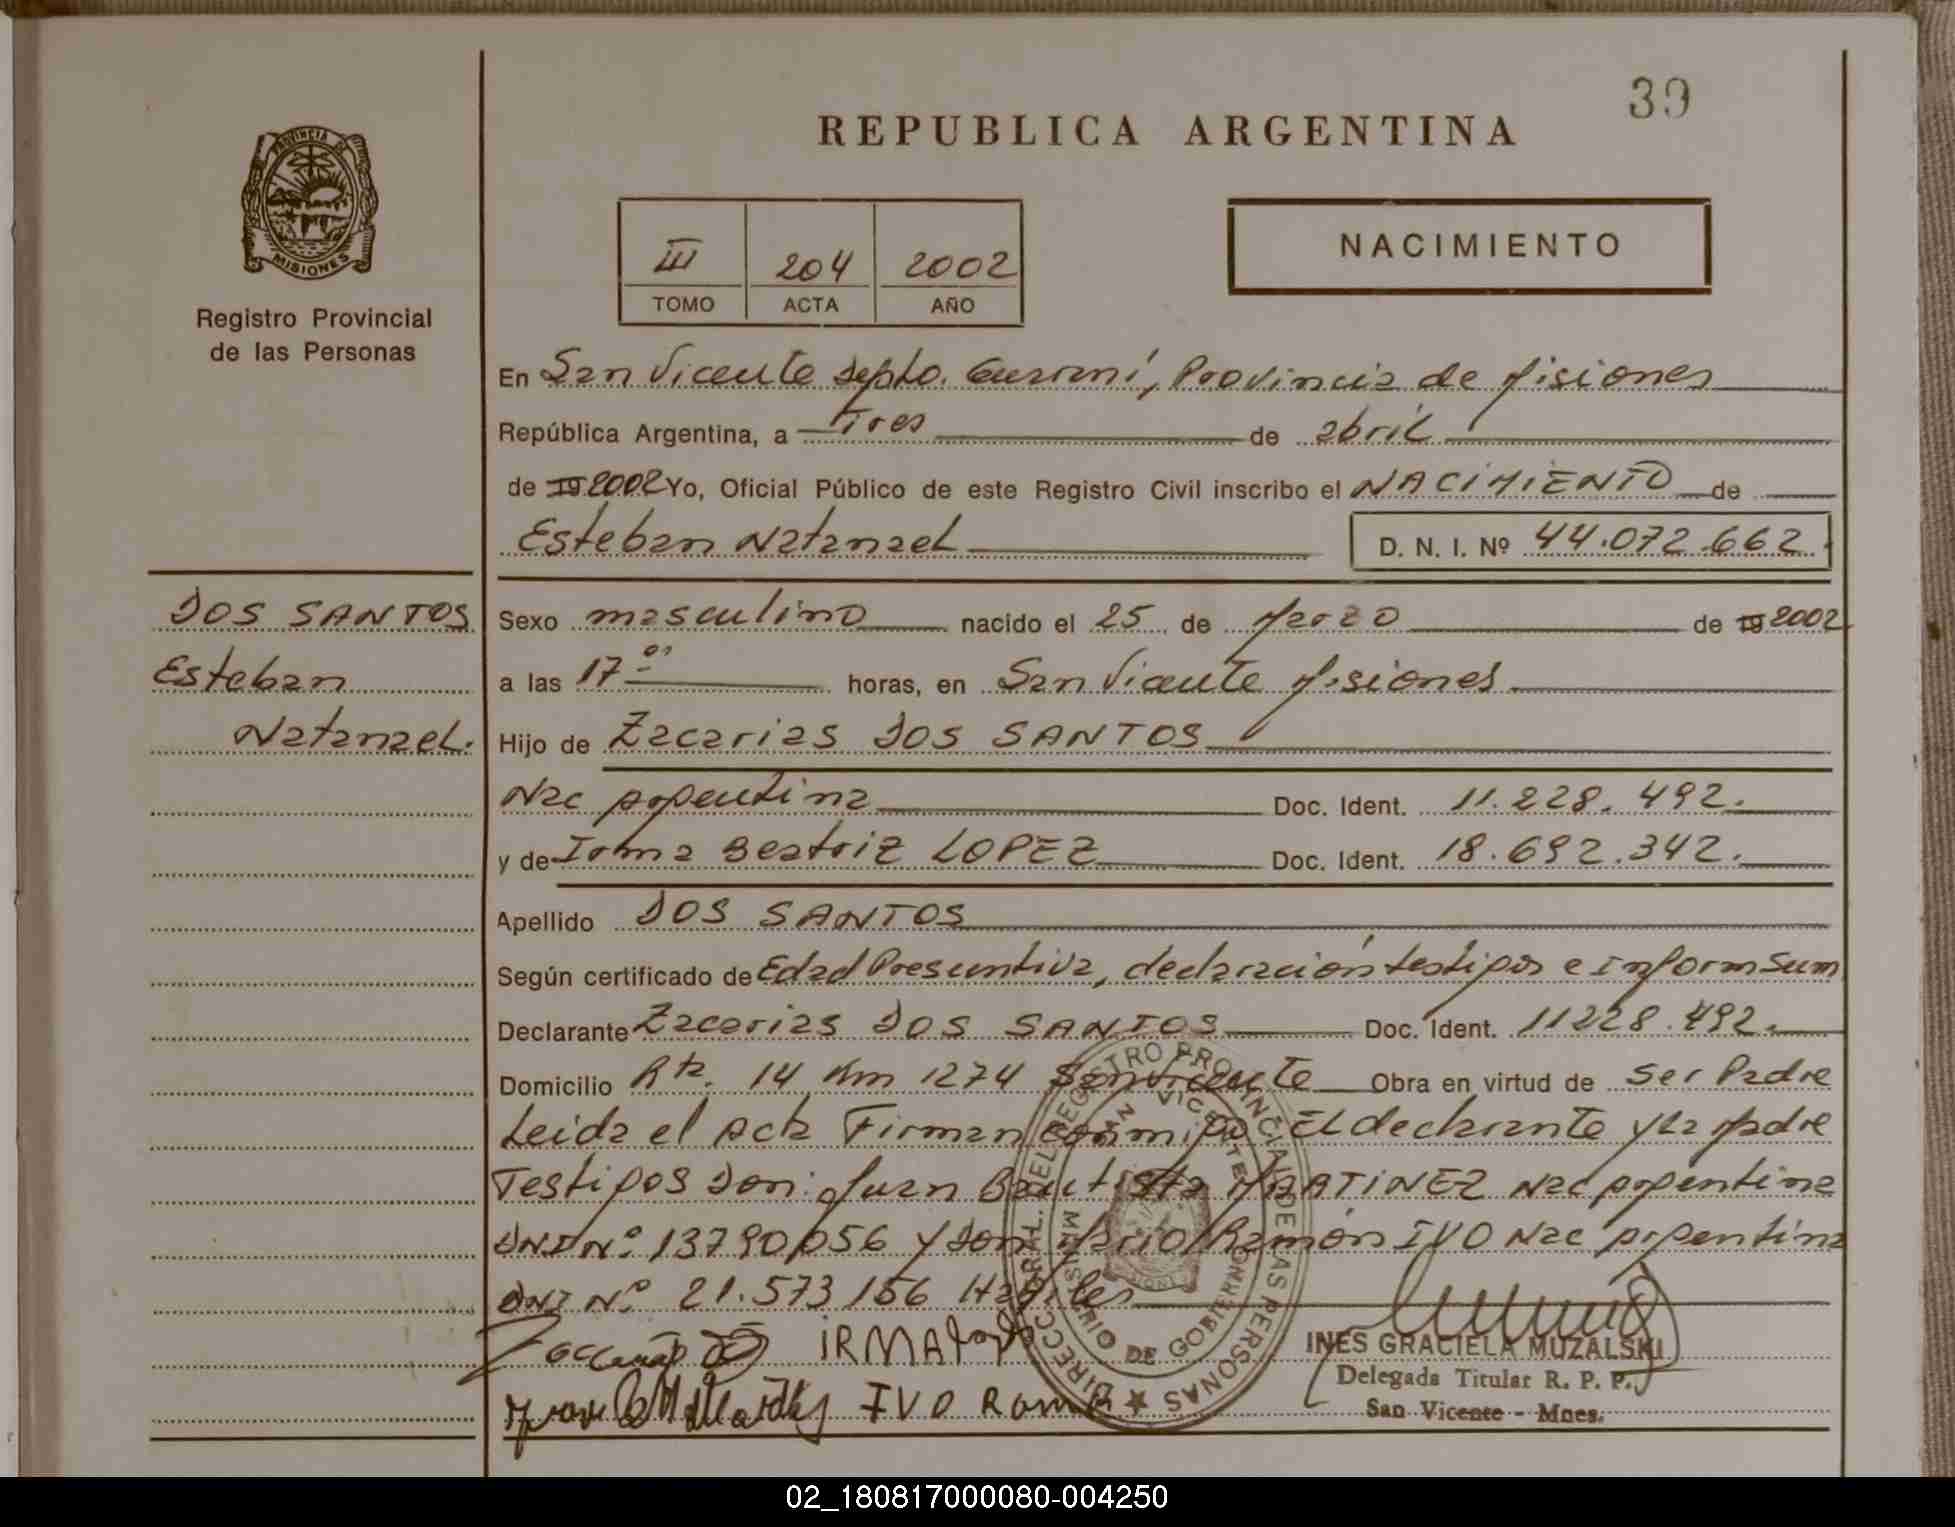 39
REPUBLICA ARGENTINA
PROVINCIA DE
MISIONES
Registro Provincial
de las Personas
III 204 2002
TOMO ACTA AÑO
NACIMIENTO
En San Vicente Depto. Guaraní, Provincia de Misiones
República Argentina, a Tres de abril
de 19 2002 Yo, Oficial Público de este Registro Civil inscribo el NACIMIENTO de
Esteban Natanael D. N. I. Nº 44.072.662.
DOS SANTOS
Esteban
Natanael.
Sexo masculino nacido el 25 de Marzo de 19 2002
a las 17 horas, en San Vicente Misiones
Hijo de Zacarias DOS SANTOS
Nac Argentina Doc. Ident. 11.228.492.
y de Irma Beatriz LOPEZ Doc. Ident. 18.692.342.
Apellido DOS SANTOS
Según certificado de Edad Presuntiva, declaración testigos e Inform Sum
Declarante Zacarias DOS SANTOS Doc. Ident. 11228.492.
Domicilio Rta. 14 Km 1274 San Vicente Obra en virtud de ser Padre
Leida el Acta Firman conmigo El declarante y la Madre
Testigos Don: Juan Bautista MARTINEZ Nac Argentina
DNI Nº 13790056 y Don Mario Ramón IVO Nac Argentina
DNI Nº 21.573156 Habiles
IRMA
IVO Ramon
DIRECC. GRAL. DEL REGISTRO PROVINCIAL DE LAS PERSONAS
MINISTERIO DE GOBIERNO
SAN VICENTE
INES GRACIELA MUZALSKI
Delegada Titular R. P. P.
San Vicente - Mnes.
02_180817000080-004250